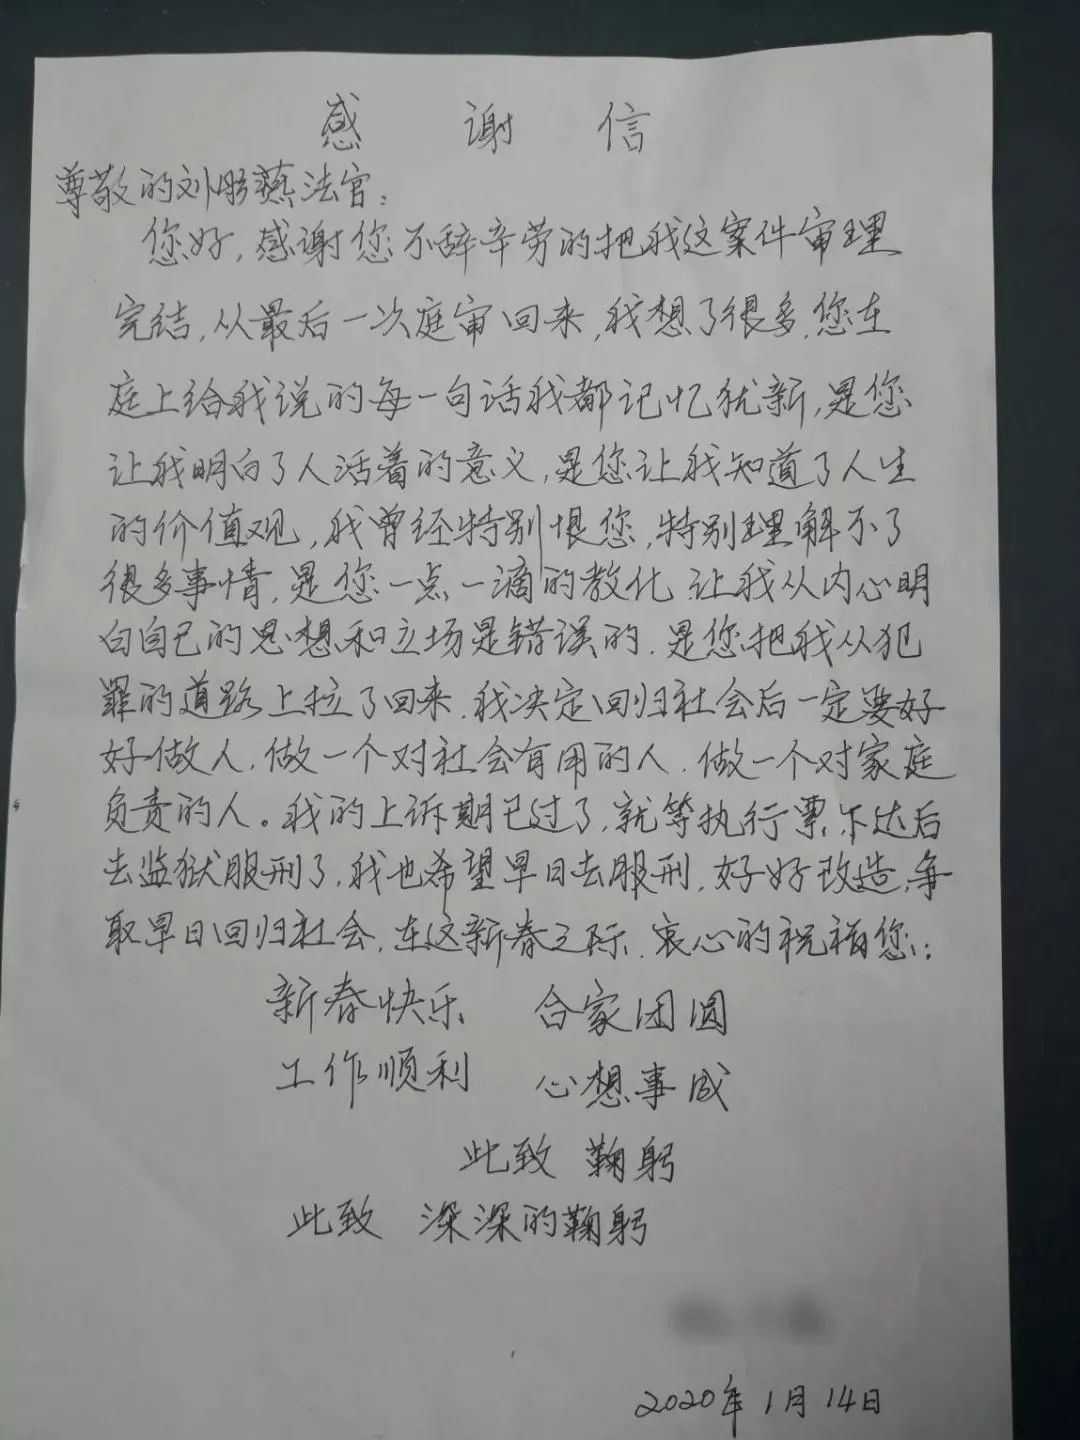 感谢信
尊敬的刘彤燕法官：
您好，感谢您不辞辛劳的把我这案件审理
完结，从最后一次庭审回来，我想了很多，您在
庭上给我说的每一句话我都记忆犹新，是您
让我明白了人活着的意义，是您让我知道了人生
的价值观，我曾经特别恨您，特别理解不了
很多事情，是您一点一滴的教化，让我从内心明
白自己的思想和立场是错误的，是您把我从犯
罪的道路上拉了回来，我决定回归社会后一定要好
好做人，做一个对社会有用的人，做一个对家庭
负责的人。我的上诉期已过了，就等执行票下达后
去监狱服刑了，我也希望早日去服刑，好好改造，争
取早日回归社会，在这新春之际，衷心的祝福您：
新春快乐 合家团圆
工作顺利 心想事成
此致 鞠躬
此致 深深的鞠躬
2020年1月14日